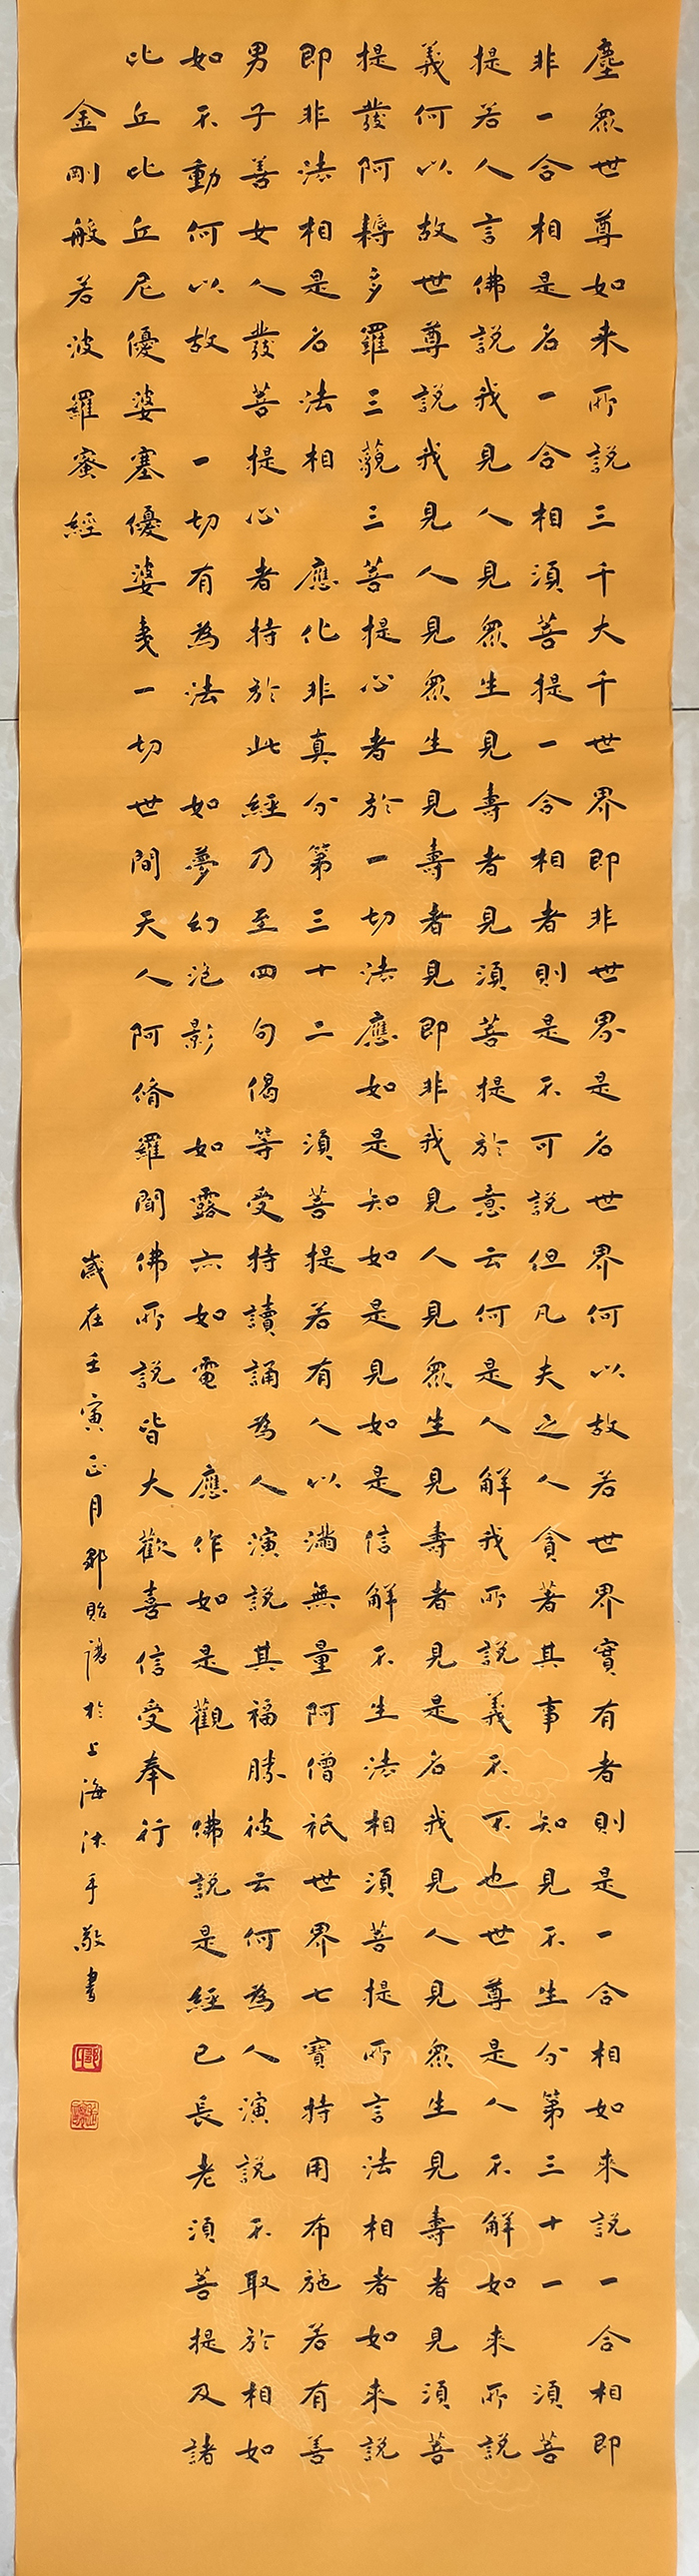 塵眾世尊如来所說三千大千世界即非世界是名世界何以故若世界實有者則是一合相如來說一合相即
非一合相是名一合相須菩提一合相者則是不可說但凡夫之人貪著其事知見不生分第三十一須菩
提若人言佛說我見人見眾生見壽者見須菩提於意云何是人解我所說義不不也世尊是人不解如来所說
義何以故世尊說我見人見眾生見壽者見即非我見人見眾生見壽者見是名我見人見眾生見壽者見須菩
提發阿耨多羅三藐三菩提心者於一切法應如是知如是見如是信解不生法相須菩提所言法相者如来說
即非法相是名法相應化非真分第三十二須菩提若有人以滿無量阿僧祇世界七寶持用布施若有善
男子善女人發菩提心者持於此經乃至四句偈等受持讀誦為人演說其福勝彼云何為人演說不取於相如
如不動何以故一切有為法如夢幻泡影如露亦如電應作如是觀佛說是經已長老須菩提及諸
比丘比丘尼優婆塞優婆夷一切世間天人阿脩羅聞佛所說皆大歡喜信受奉行
金剛般若波羅蜜經
歲在壬寅正月鄒貽於上海沐手敬書